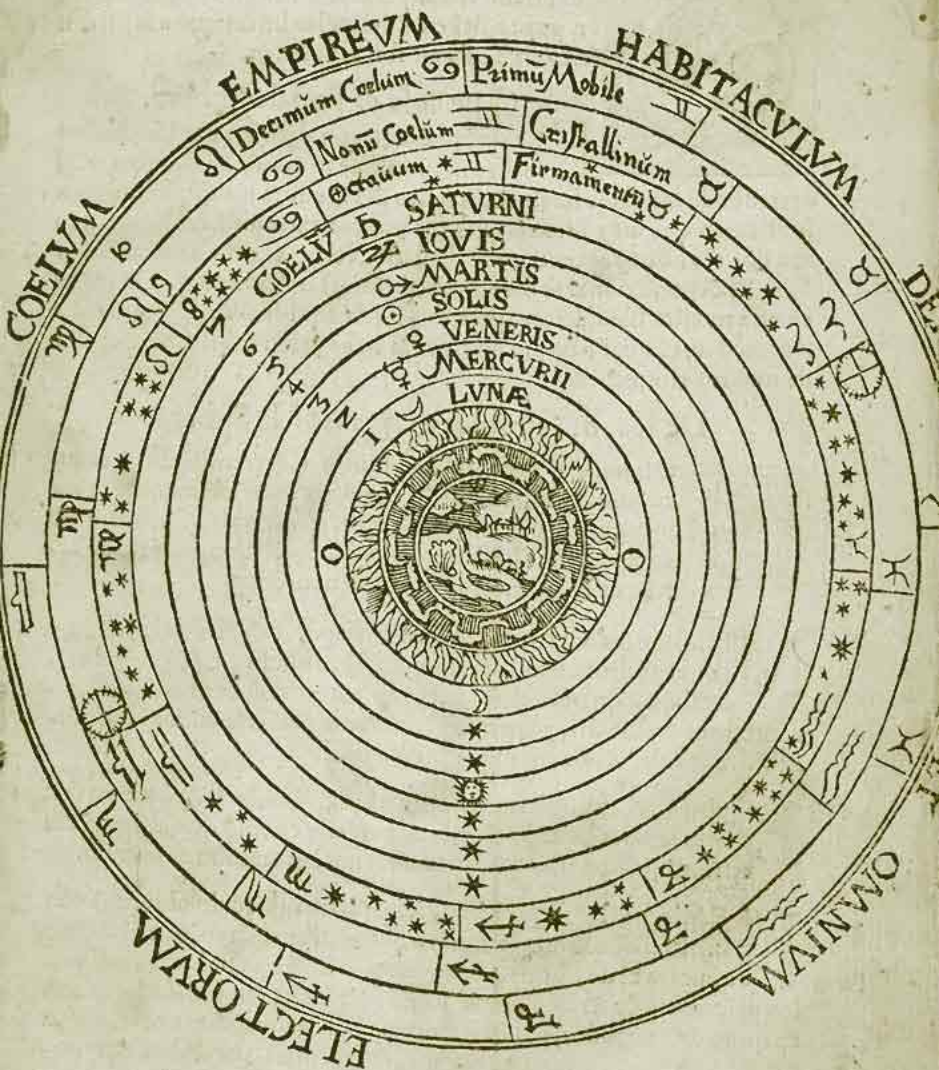 COELVM EMPIREVM HABITACULVM DEI ET OMNIVM ELECTORVM
Decimum Coelum ♋ Primũ Mobile ♊
Nonũ Coelum ♊ Cristallinum ♉
Octauum ♊ Firmamentũ ♉
8
7 COELṼ ♄ SATVRNI
6 ♃ IOVIS
5 ♂ MARTIS
4 ☉ SOLIS
3 ♀ VENERIS
2 ☿ MERCVRII
1 ☽ LVNÆ